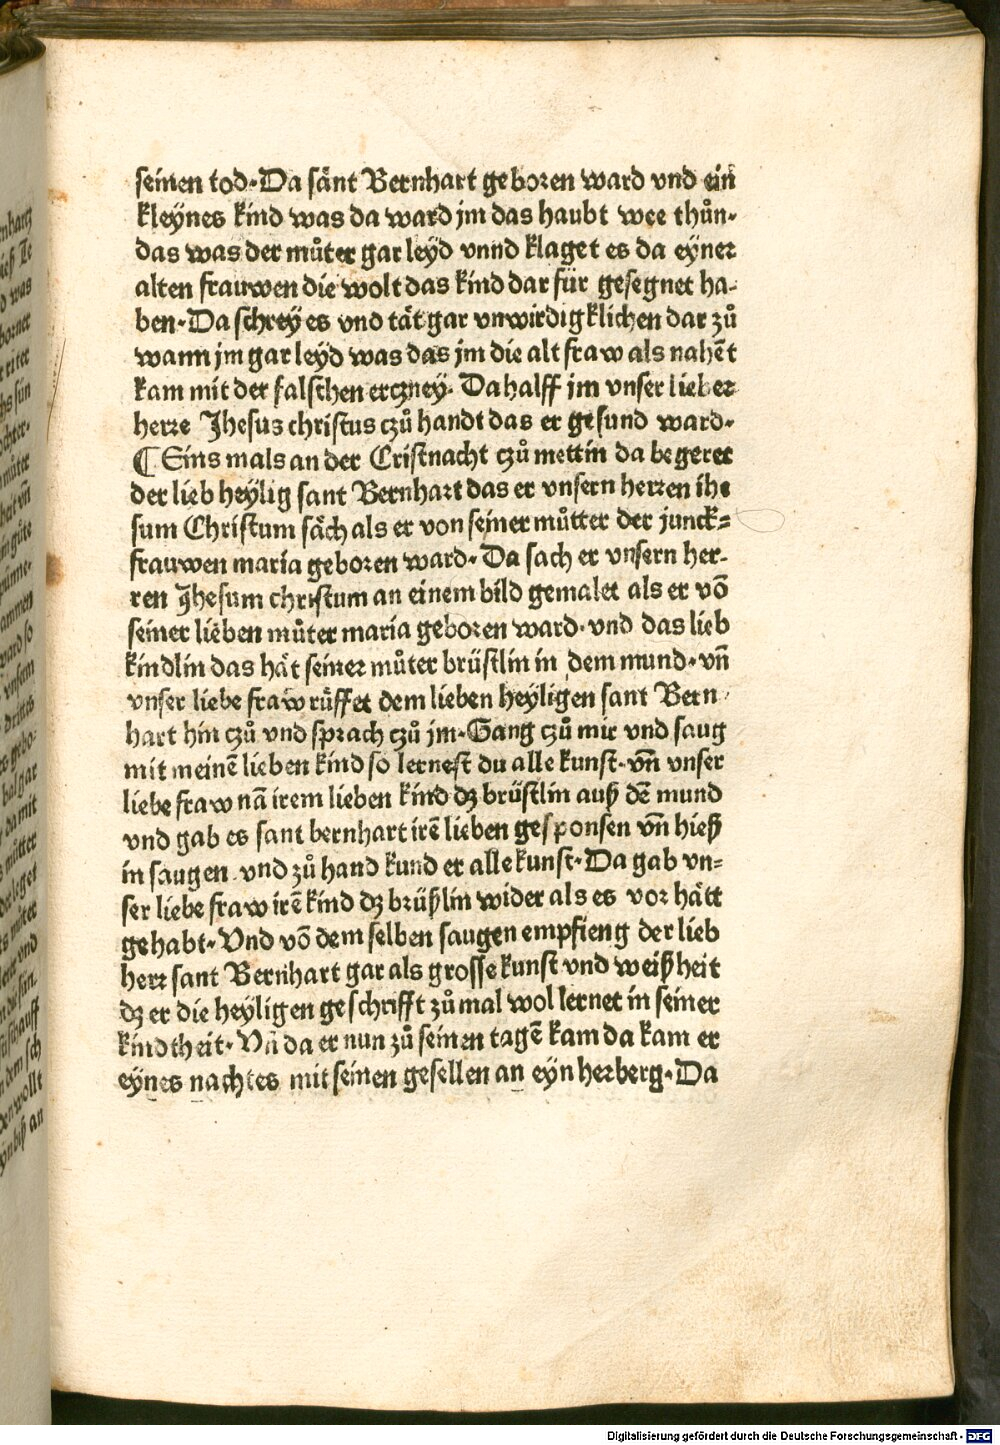 seinen tod. Da sånt Bernhart geboren ward vnd ein
kleÿnes kind was da ward jm das haubt wee thůn.
das was der můter gar leÿd vnnd klaget es da eÿner
alten frauwen die wolt das kind dar für gesegnet ha-
ben. Da schreÿ es vnd tåt gar vnwirdigklichen dar zů
wann jm gar leÿd was das jm die alt fraw als nahēt
kam mit der falschen erczneÿ. Da halff jm vnser lieber
herre Jhesus christus czů handt das er gesund ward.
¶ Eins mals an der Cristnacht czů mettin da begeret
der lieb heÿlig sant Bernhart das er vnsern herren ihe
sum Christum såch als er von seiner můtter der junck=
frauwen maria geboren ward. Da sach er vnsern her-
ren Jhesum christum an einem bild gemalet als er vō
seiner lieben můter maria geboren ward. vnd das lieb
kindlin das håt seiner můter brüstlin in dem mund. vn̄
vnser liebe fraw růffet dem lieben heÿligen sant Bern
hart hin czů vnd sprach czů jm. Gang czů mir vnd saug
mit meinē lieben kind so lernest du alle kunst. vn̄ vnser
liebe fraw nā irem lieben kind dz brüstlin auß dē mund
vnd gab es sant bernhart irē lieben gesponsen vn̄ hieß
in saugen. vnd zů hand kund er alle kunst. Da gab vn=
ser liebe fraw irē kind dz brüßlin wider als es vor hått
gehabt. Vnd vō dem selben saugen empfieng der lieb
herr sant Bernhart gar als grosse kunst vnd weißheit
dz er die heÿligen geschrifft zů mal wol lernet in seiner
kindtheit. Vn̄ da er nun zů seinen tagē kam da kam er
eÿnes nachtes mit seinen gesellen an eÿn herberg. Da
Digitalisierung gefördert durch die Deutsche Forschungsgemeinschaft - DFG